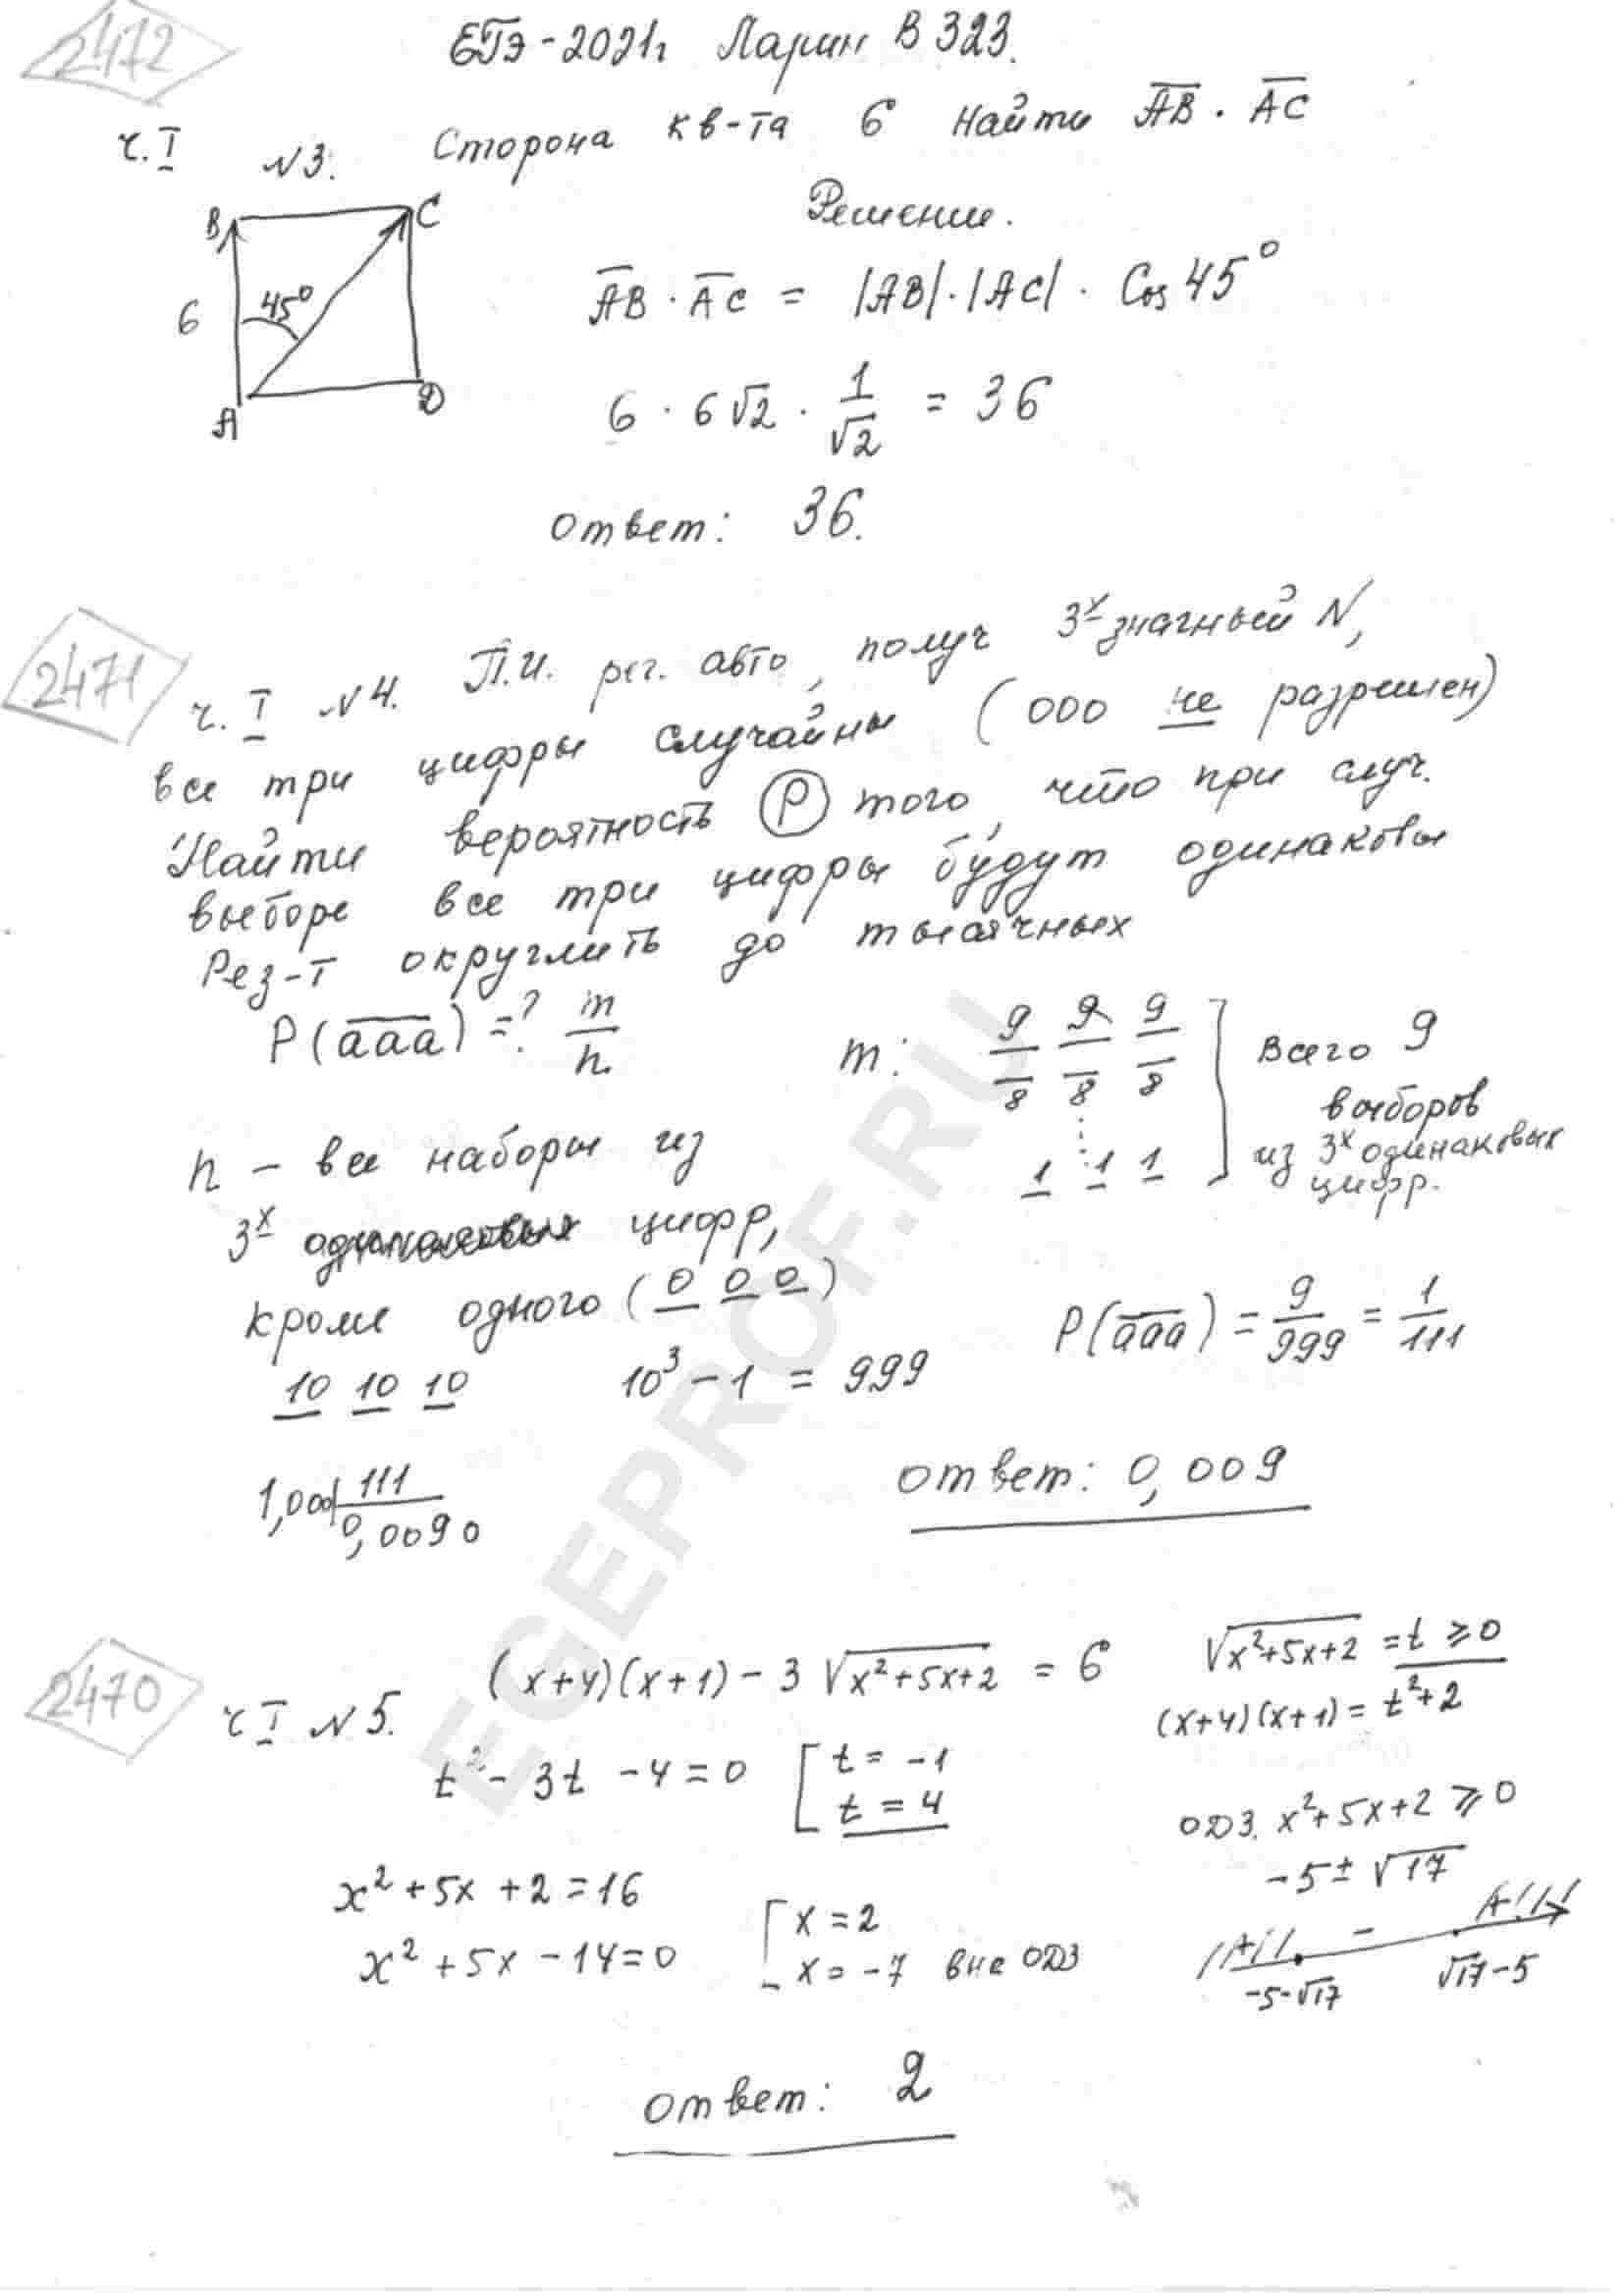 2472
ЕГЭ-2021г Ларин В 323.
ч.I №3. Сторона кв-та 6 Найти AB · AC
Решение.
B C
6 45°
A D
AB · AC = |AB|·|AC| · Cos 45°
6 · 6√2 · 1/√2 = 36
Ответ: 36.
2471
ч. I №4. П.И. рег. авто, получ 3х значный N,
все три цифры случайны (000 не разрешен)
Найти вероятность P того, что при случ.
выборе все три цифры будут одинаковы
Рез-т округлить до тысячных
P(aaa) = ? m/n
m: 9 9 9
8 8 8
1 1 1
Всего 9
выборов
из 3х одинаковых
цифр.
n – все наборы из
3х цифр,
кроме одного (0 0 0)
10 10 10 10³ – 1 = 999
P(aaa) = 9/999 = 1/111
1,000 | 111
0,0090
Ответ: 0,009
2470
ч I №5. (x+4)(x+1) – 3√x²+5x+2 = 6
√x²+5x+2 = t ⩾ 0
(x+4)(x+1) = t²+2
t² – 3t – 4 = 0 [ t = –1
t = 4
ОДЗ. x²+5x+2 ⩾ 0
–5 ± √17
x² + 5x + 2 = 16
x² + 5x – 14 = 0
[ x = 2
x = –7 вне ОДЗ
+ – +
–5–√17 √17–5
Ответ: 2
EGEPROF.RU